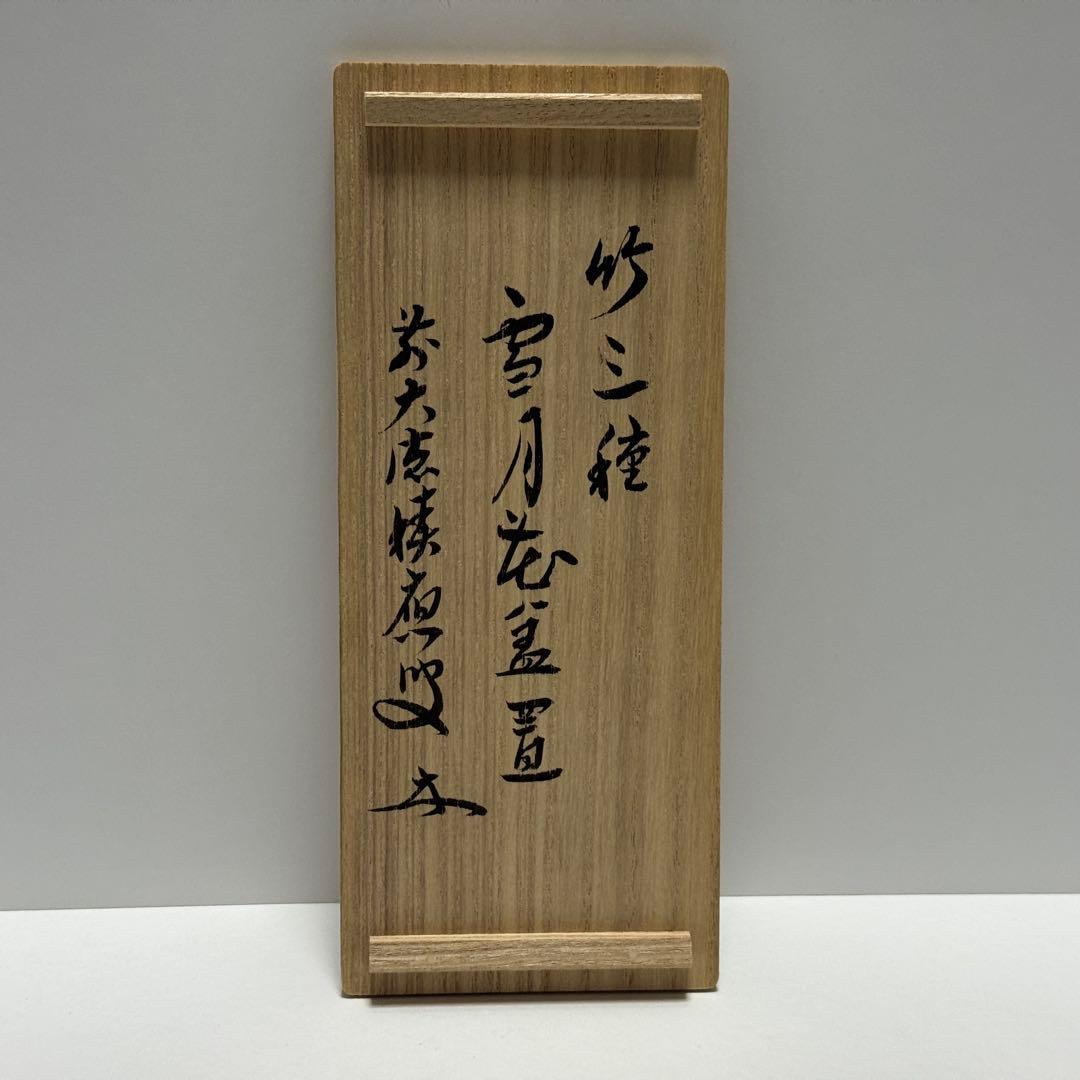 竹三種
雪月花盖置
前大徳積應叟